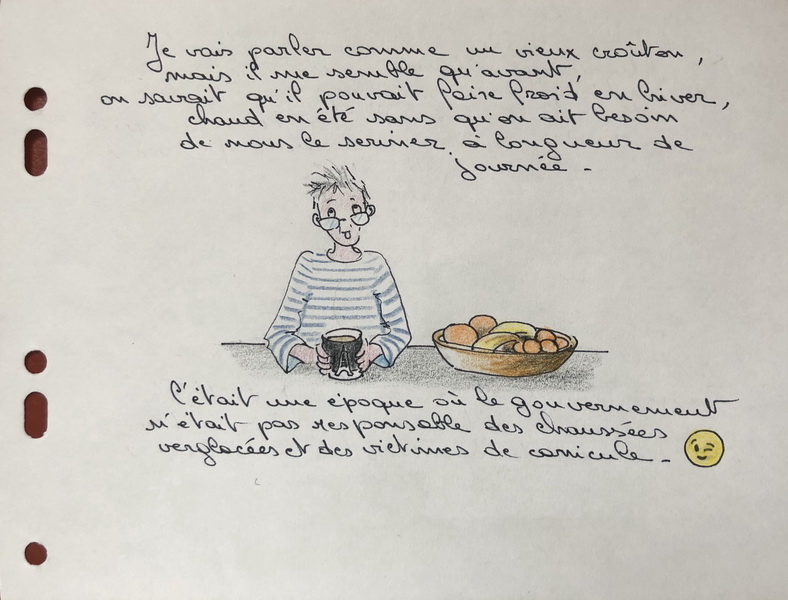 Je vais parler comme un vieux croûton,
mais il me semble qu'avant,
on savait qu'il pouvait faire froid en hiver,
chaud en été sans qu'on ait besoin
de nous le seriner à longueur de
journée.
C'était une époque où le gouvernement
n'était pas responsable des chaussées
verglacées et des victimes de canicule.